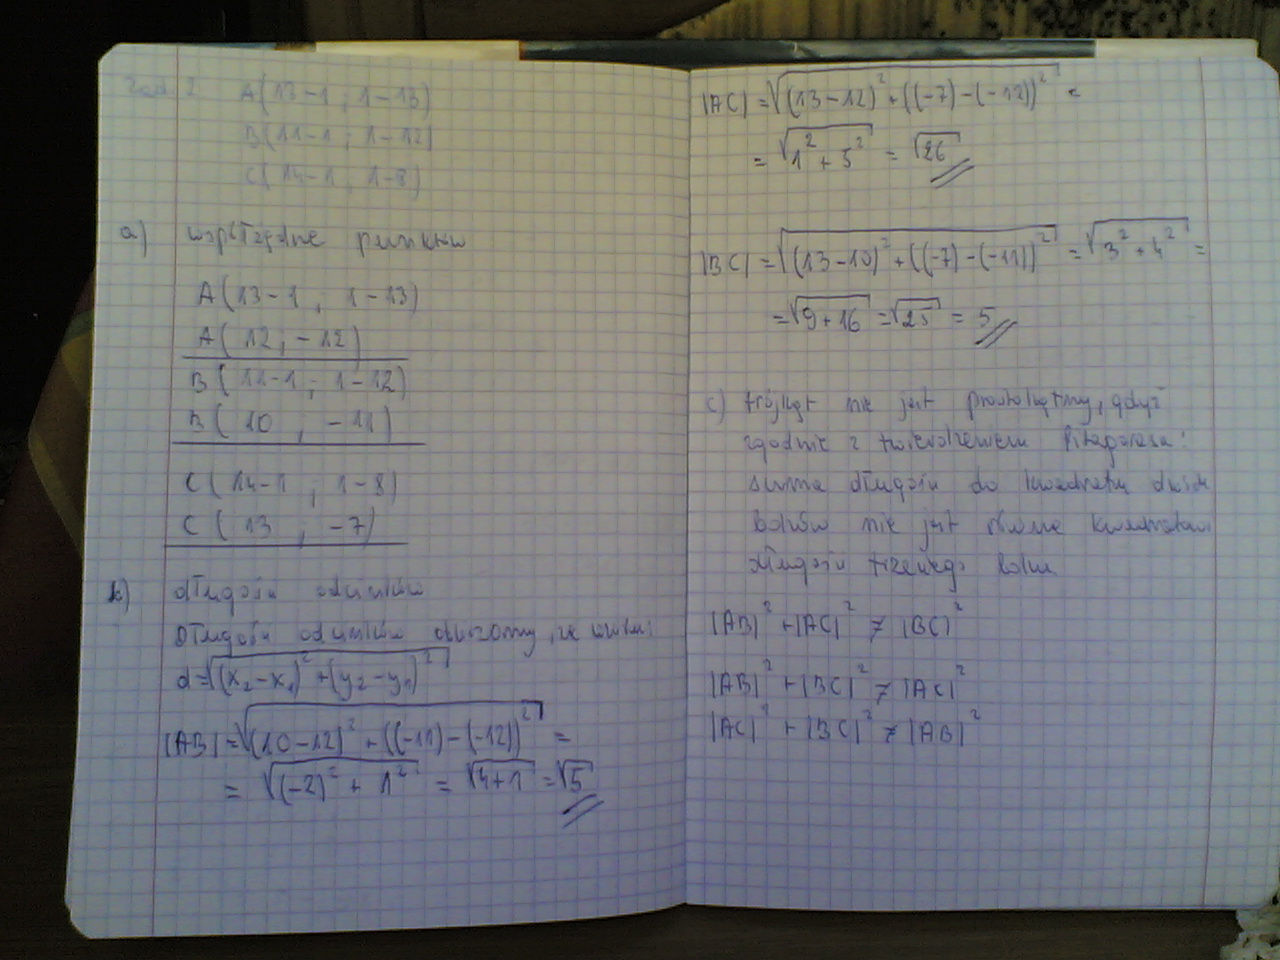 zad 2 A(13-1 ; 1-13)
B(11-1 ; 1-12)
C(14-1 ; 1-8)
a) współrzędne punktów
A(13-1 ; 1-13)
A(12 ; -12)
B(11-1 ; 1-12)
B(10 , -11)
C(14-1 ; 1-8)
C(13 , -7)
b) długości odcinków
Długości odcinków obliczamy, ze wzoru:
d=√(x₂-x₁)²+(y₂-y₁)²
|AB|=√(10-12)²+((-11)-(-12))² =
= √(-2)²+1² = √4+1 = √5
|AC|=√(13-12)²+((-7)-(-12))² =
= √1²+5² = √26
|BC|=√(13-10)²+((-7)-(-11))² = √3²+4² =
=√9+16 =√25 = 5
c) trójkąt nie jest prostokątny, gdyż
zgodnie z twierdzeniem Pitagorasa:
suma długości do kwadratu dwóch
boków nie jest równa kwadratowi
długości trzeciego boku.
|AB|²+|AC|² ≠ |BC|²
|AB|²+|BC|² ≠ |AC|²
|AC|²+|BC|² ≠ |AB|²